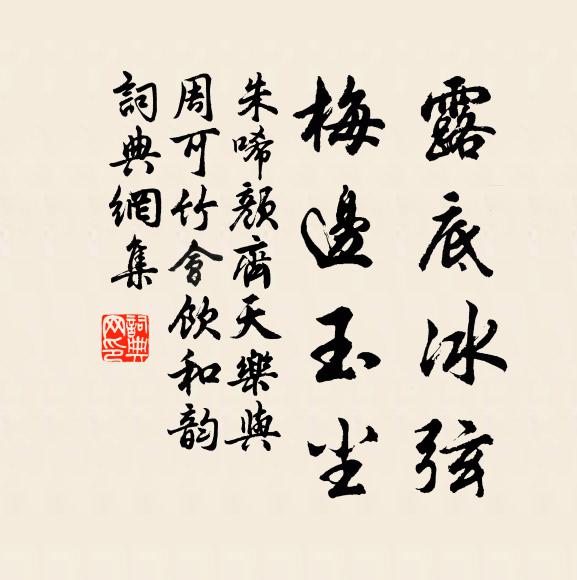 露底冰弦
梅邊玉尘
朱晞颜齊天樂與
周可竹會飲和韵
詞典網集
詞典
网印